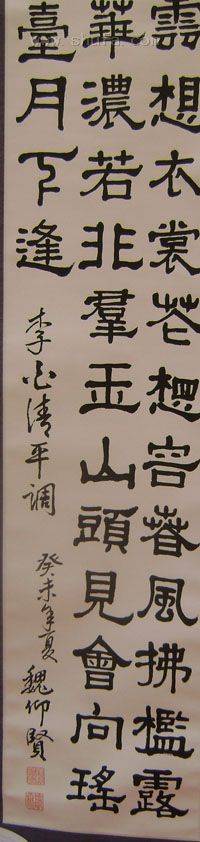 雲想衣裳花想容春風拂檻露
華濃若非羣玉山頭見會向瑤
臺月下逢
李白清平调
癸未年夏 魏仰賢